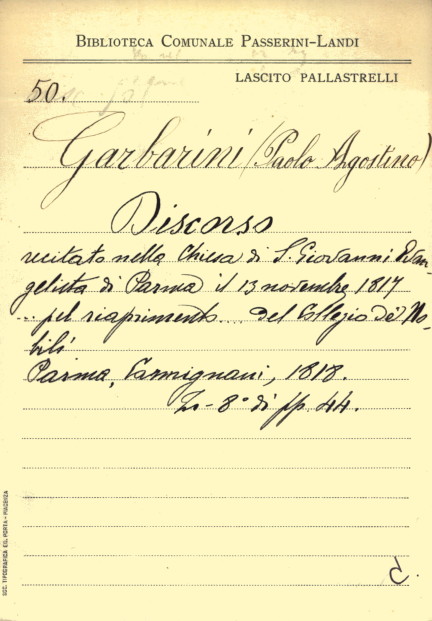 BIBLIOTECA COMUNALE PASSERINI-LANDI
LASCITO PALLASTRELLI
50.
Garbarini (Paolo Agostino)
Discorso
recitato nella Chiesa di S. Giovanni Evan-
gelista di Parma il 13 novembre 1817
... pel riaprimento ... del Collegio de' No-
bili
Parma, Carmignani, 1818.
In-8° di pp. 44.
SOC. TIPOGRAFICA EX. PORTA - PIACENZA